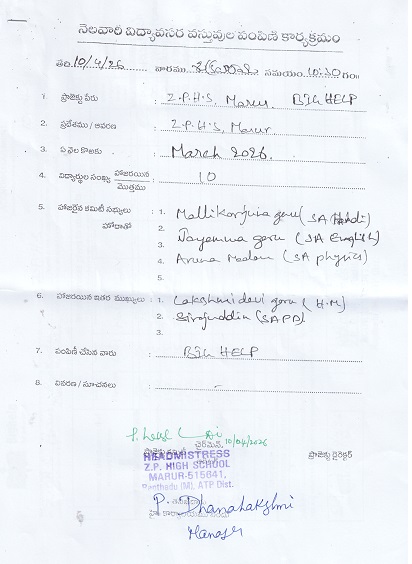 నెలవారి విద్యావసర వస్తువుల పంపిణి కార్యక్రమం
తేది: 10/4/26 వారము శుక్రవారం సమయం 10:30 గం॥
1. ప్రాజెక్టు పేరు : Z.P.H.S, Marur. BIG HELP
2. ప్రదేశము / ఆవరణ : Z.P.H.S, Marur
3. ఏ నెల కొరకు : March 2026.
4. విద్యార్థుల సంఖ్య హాజరయిన మొత్తము : 10
5. హాజరైన కమిటీ సభ్యులు : 1. Mallikarjuna garu (SA Hindi)
హోదాతో 2.
3. Jayamma garu (SA English)
4. Aruna Madam (SA physics)
5.
6. హాజరయిన ఇతర ముఖ్యులు : 1. Lakshmidevi garu (H.M)
2. Sirajuddin (SAPD)
3.
7. పంపిణీ చేసిన వారు : BIG HELP
8. వివరణ / సూచనలు : -
చైర్మెన్, 10/04/2026
ప్రాజెక్టు డైరెక్టర్
HEADMISTRESS
Z.P. HIGH SCHOOL
MARUR-515641,
(M), ATP Dist.
P. Dhanalakshmi